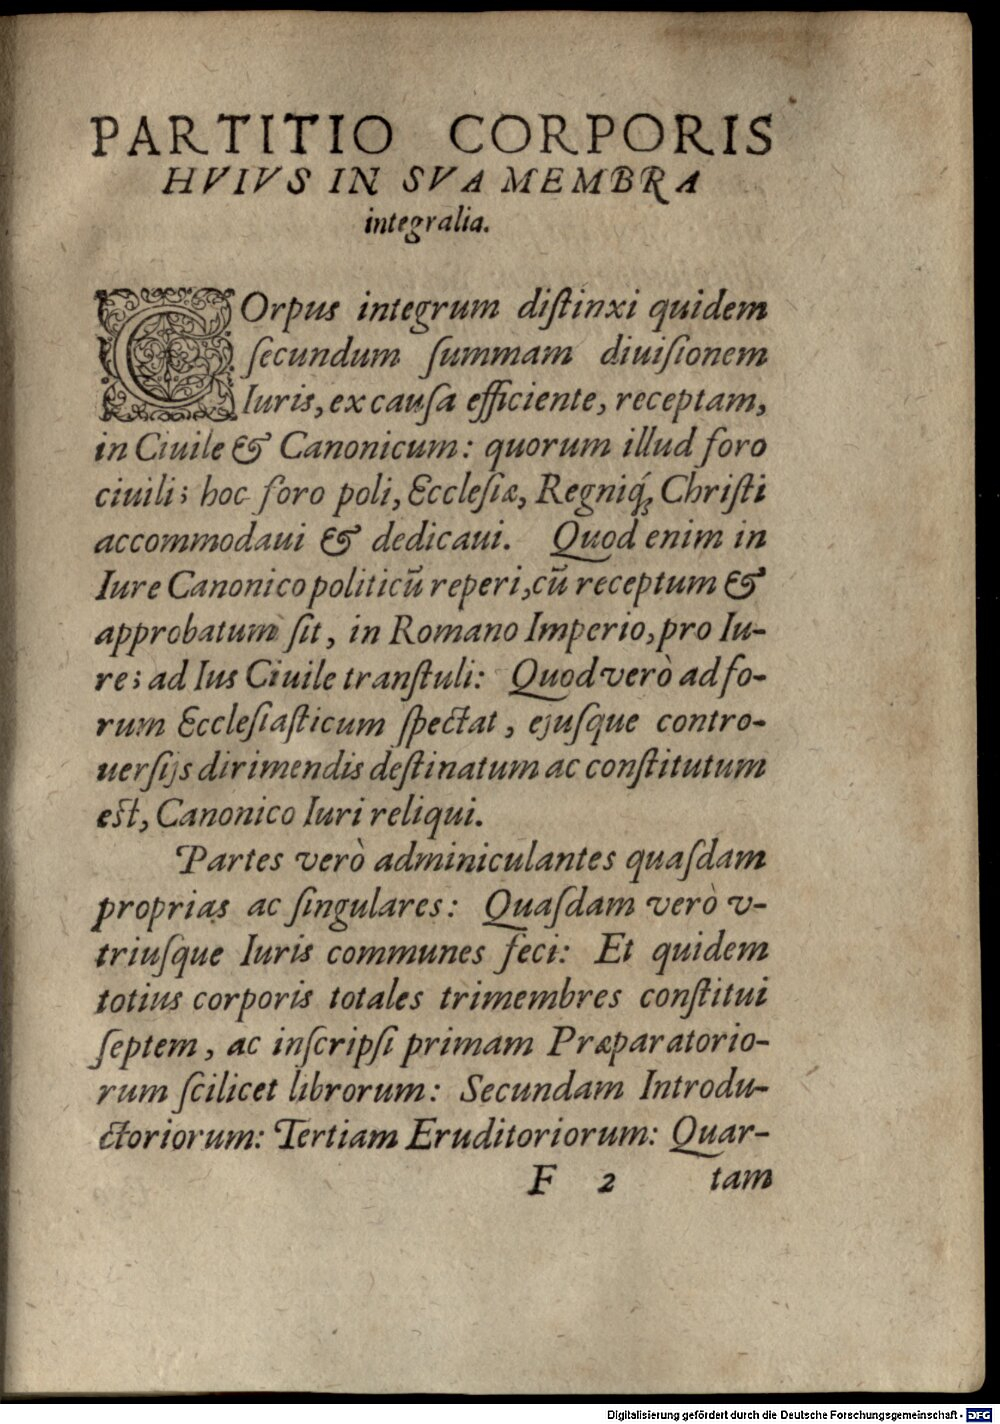 PARTITIO CORPORIS
HVIVS IN SVA MEMBRA
integralia.
COrpus integrum diſtinxi quidem
ſecundum ſummam diuiſionem
Iuris, ex cauſa efficiente, receptam,
in Ciuile & Canonicum: quorum illud foro
ciuili; hoc foro poli, Eccleſiæ, Regniq́ꝫ Chriſti
accommodaui & dedicaui. Quod enim in
Iure Canonico politicū reperi, cū receptum &
approbatum ſit, in Romano Imperio, pro Iu-
re; ad Ius Ciuile tranſtuli: Quod verò ad fo-
rum Eccleſiaſticum ſpectat, ejuſque contro-
uerſijs dirimendis deſtinatum ac conſtitutum
eſt, Canonico Iuri reliqui.
Partes verò adminiculantes quaſdam
proprias ac ſingulares: Quaſdam verò v-
triuſque Iuris communes feci: Et quidem
totius corporis totales trimembres conſtitui
ſeptem, ac inſcripſi primam Præparatorio-
rum ſcilicet librorum: Secundam Introdu-
ctoriorum: Tertiam Eruditoriorum: Quar-
F 2 tam
Digitalisierung gefördert durch die Deutsche Forschungsgemeinschaft - DFG